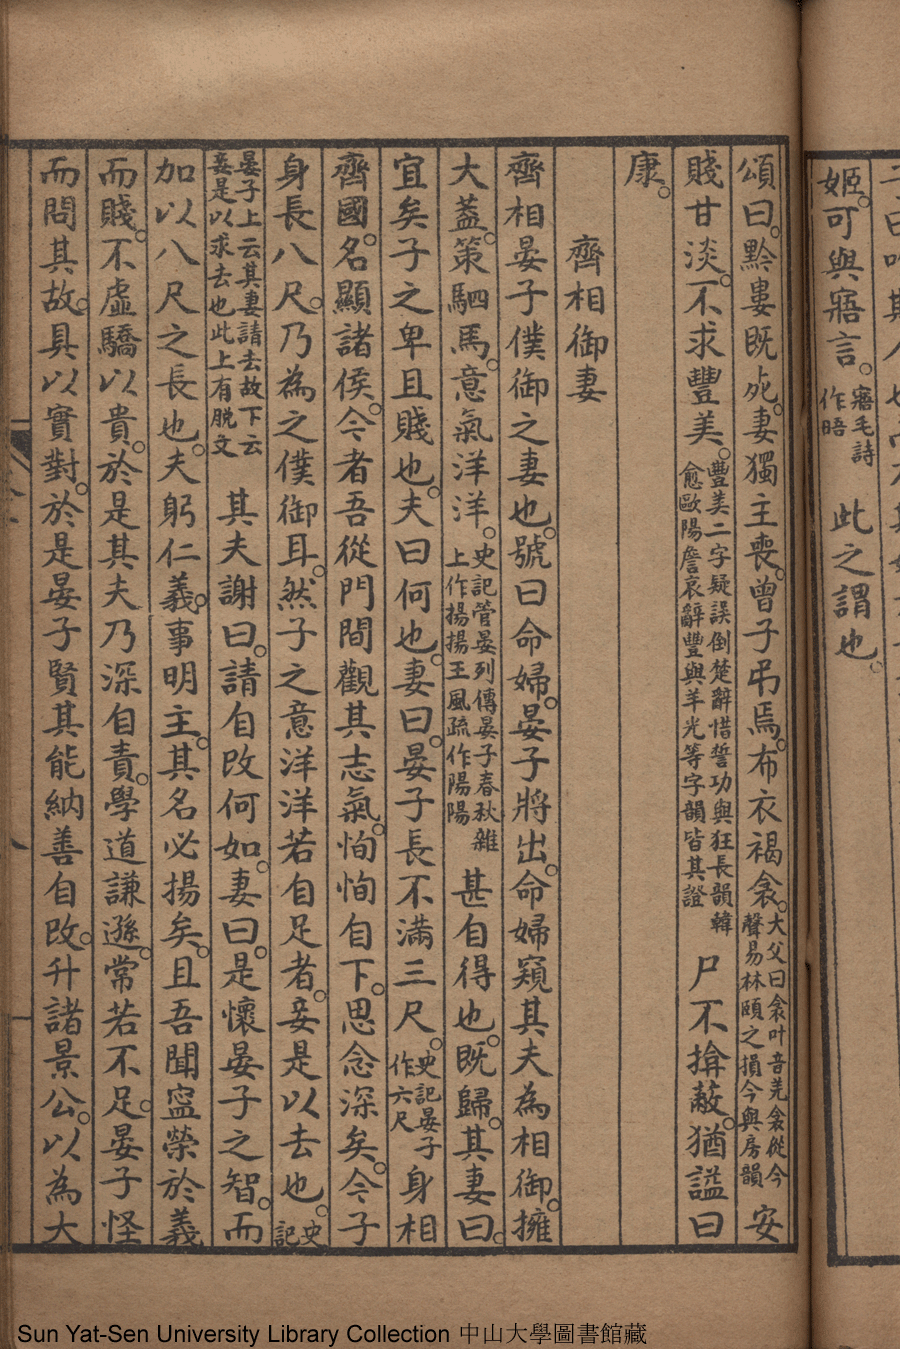 姬。可與寤言。寤毛詩作晤 此之謂也。
頌曰。黔婁既死。妻獨主喪。曾子弔焉。布衣褐衾。大父曰衾叶音羌衾從今聲易林頤之損今與房韻 安
賤甘淡。不求豐美。豐美二字疑誤倒楚辭惜誓功與狂長韻韓愈歐陽詹哀辭豐與羊光等字韻皆其證 尸不揜蔽。猶謚曰
康。
齊相御妻
齊相晏子僕御之妻也。號曰命婦。晏子將出。命婦窺其夫為相御。擁
大蓋。策駟馬。意氣洋洋。史記管晏列傳晏子春秋雜上作揚揚王風疏作陽陽 甚自得也。既歸。其妻曰。
宜矣子之卑且賤也。夫曰何也。妻曰。晏子長不滿三尺。史記晏子作六尺 身相
齊國。名顯諸侯。今者吾從門間觀其志氣。恂恂自下。思念深矣。今子
身長八尺。乃為之僕御耳。然子之意洋洋若自足者。妾是以去也。史記
晏子上云其妻請去故下云妾是以求去也此上有脫文 其夫謝曰。請自改何如。妻曰。是懷晏子之智。而
加以八尺之長也。夫躬仁義。事明主。其名必揚矣。且吾聞寧榮於義
而賤。不虛驕以貴。於是其夫乃深自責。學道謙遜。常若不足。晏子怪
而問其故。具以實對。於是晏子賢其能納善自改。升諸景公。以為大
Sun Yat-Sen University Library Collection 中山大學圖書館藏